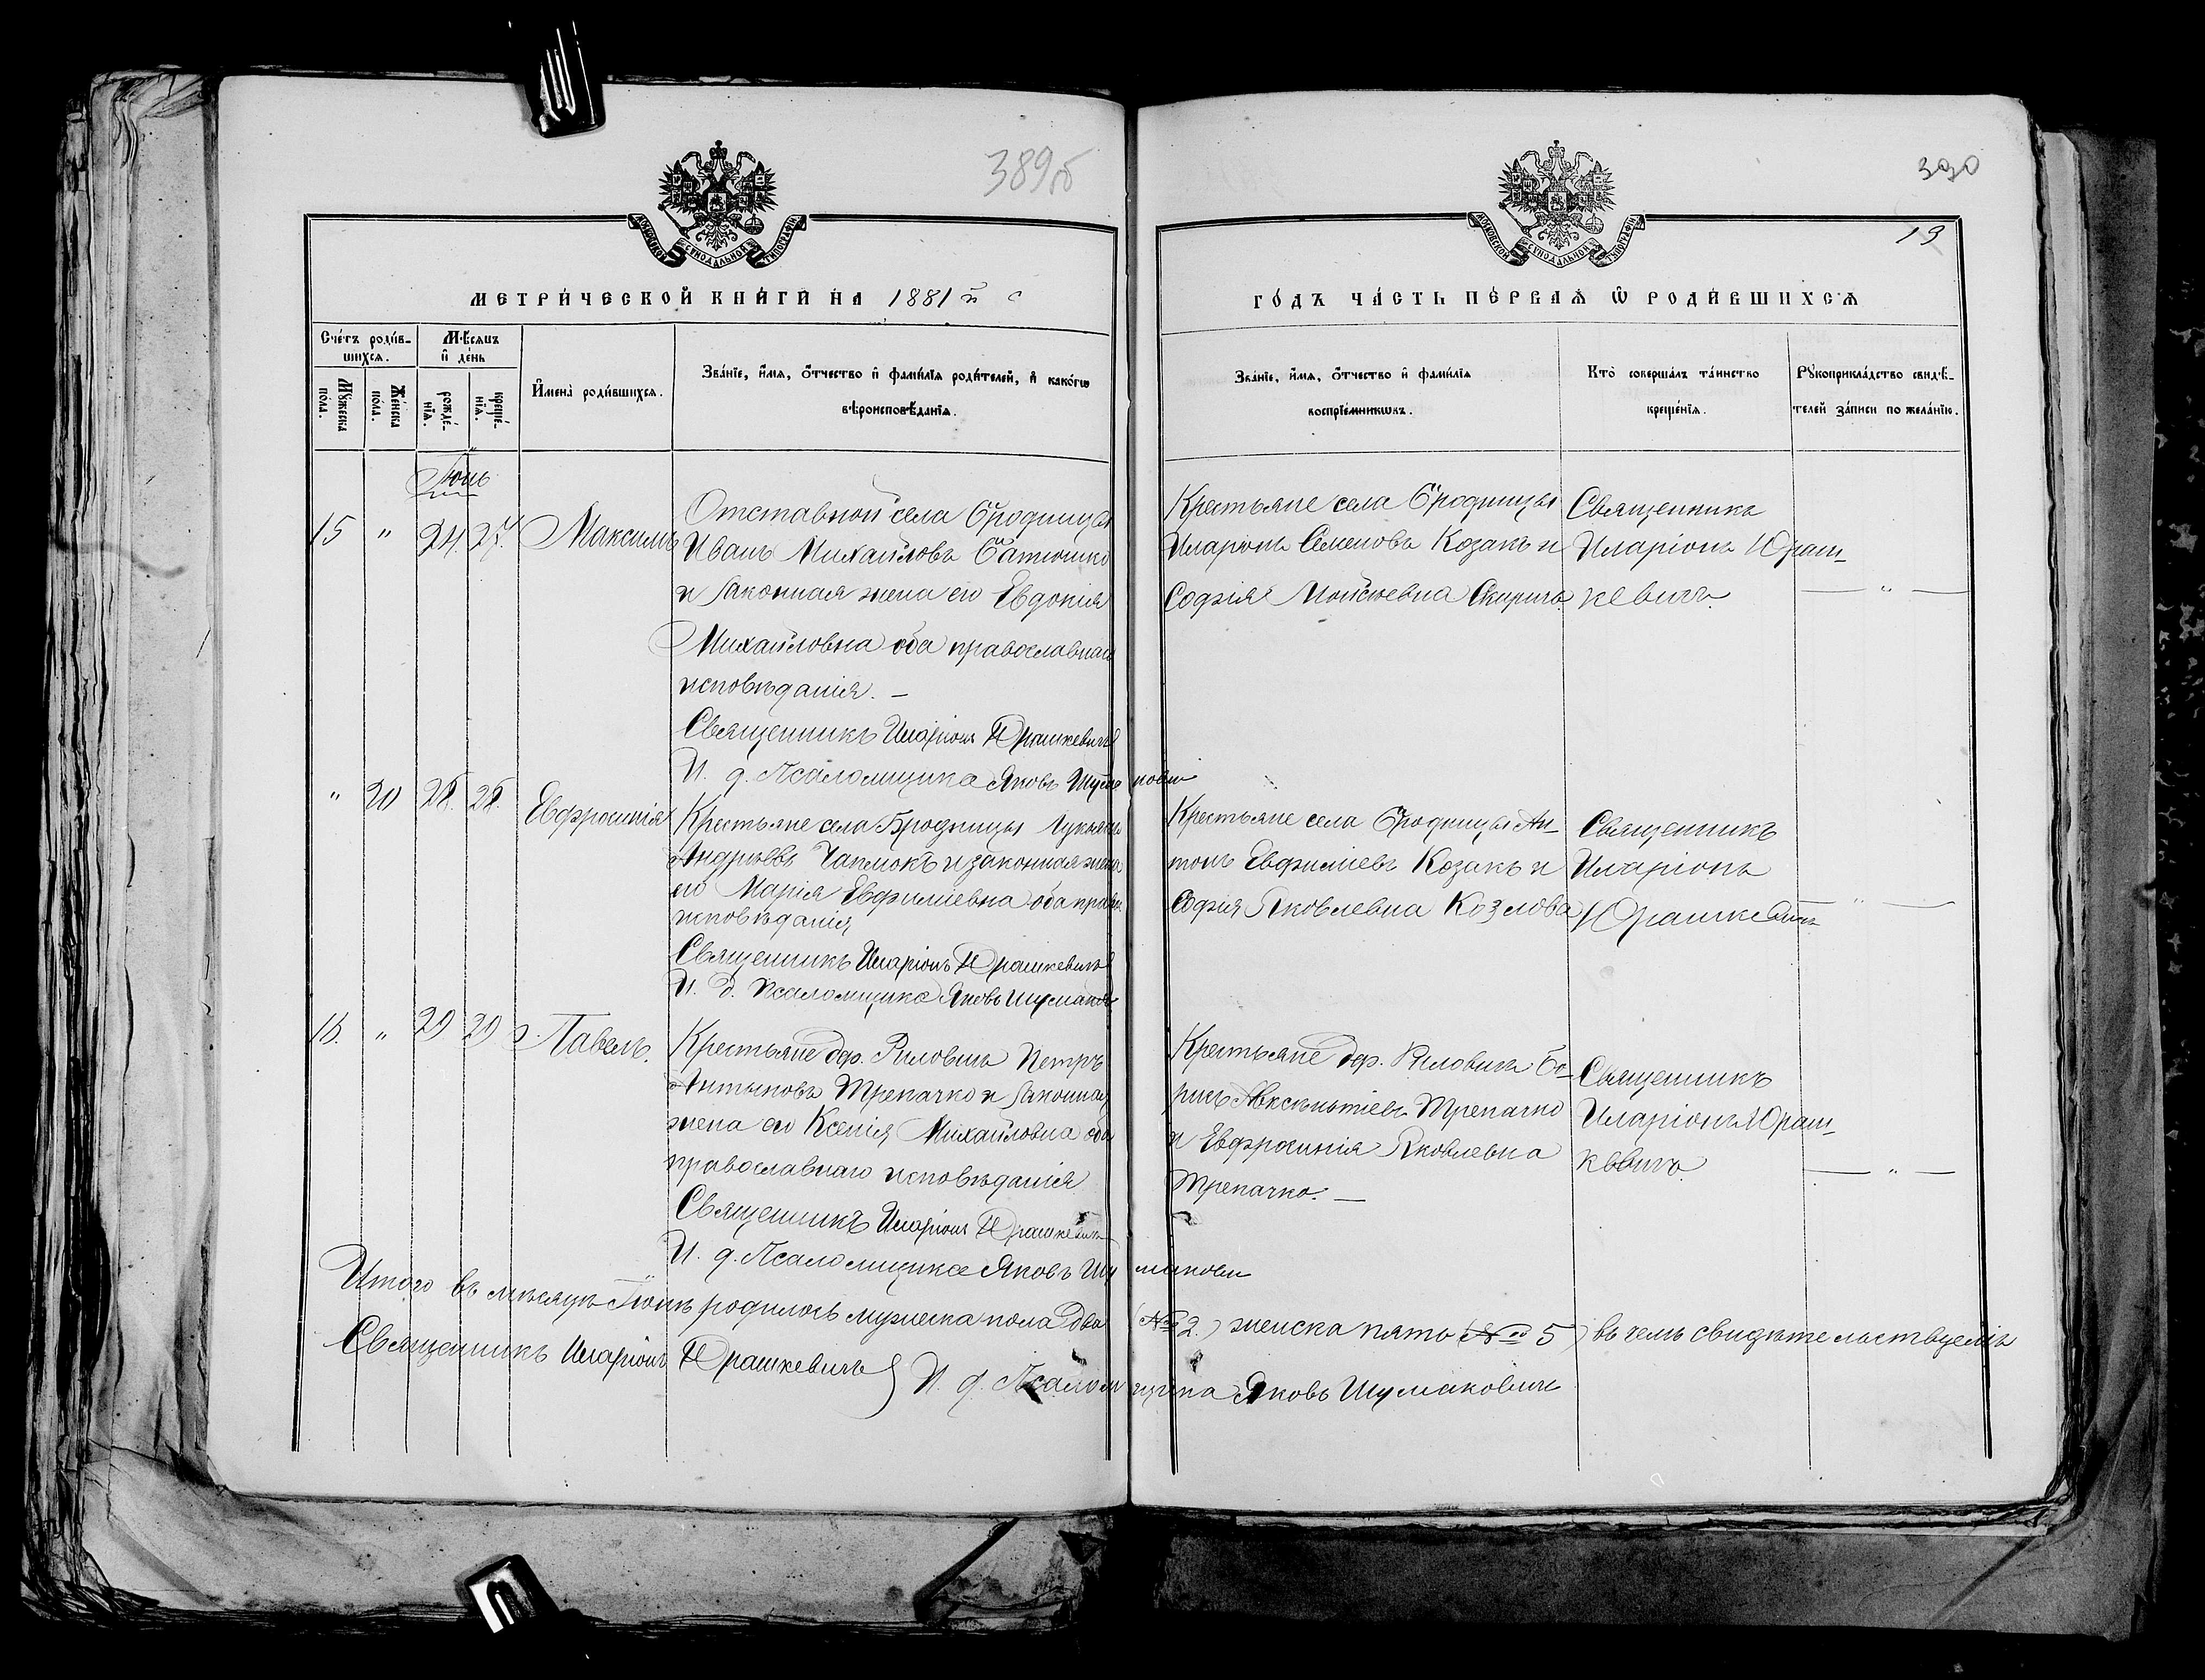 389об
390
19
МОСКОВСКОЙ СѴНОДАЛЬНОЙ ТИПОГРАФІИ
МОСКОВСКОЙ СѴНОДАЛЬНОЙ ТИПОГРАФІИ
МЕТРИ́ЧЕСКОЙ КНИ́ГИ НА 1881й
ГО́ДЪ ЧА́СТЬ ПЕ́РВАѦ Ѡ РОДИ́ВШИХСѦ
Сче́тъ роди́в-
шихсѧ.
Мѣ́сѧцъ
и де́нь
Мꙋ́жеска
по́ла.
Же́нска
по́ла.
рожде́-
нїѧ.
креще́-
нїѧ.
Имена̀ роди́вшихсѧ.
Зва́нїе, и́мѧ, о́тчество и фами́лїѧ роди́телей, и како́гѡ
вѣроисповѣ́данїѧ.
Зва́нїе, и́мѧ, о́тчество и фами́лїѧ
воспрїе́мникѡвъ.
Кто̀ соверша́лъ та́инство
креще́нїѧ.
Рꙋкоприкла́дство свидѣ́-
телей за́писи по жела́нїю.
15 " 24. 27. Максимъ
Отставной села Бродницы
Иванъ Михайловъ Батюшко
и законная жена его Евдокія
Михайловна оба православнаго
исповѣданія. —
Священникъ Иларіонъ Юрашкевичъ
И. д. Псаломщика Яковъ Шумаковичъ
Крестьяне села Бродницы
Иларіонъ Семеновъ Козакъ и
Софія Моисеевна
Священникъ
Иларіонъ Юраш-
кевичъ.
— " —
" 20 28. 28. Евфросинія
Крестьяне села Бродницы Лукьянъ
Андреевъ и законная жена
его Марія Евфиміевна оба правосл.
исповѣданія
Священникъ Иларіонъ Юрашкевичъ
И. д. Псаломщика Яковъ Шумаковичъ
Крестьяне села Бродницы Ан-
тонъ Евфиміевъ Козакъ и
Софія Яковлевна Козлова
Священникъ
Иларіонъ
Юрашкевичъ
— " —
16. " 29 29 Павелъ.
Крестьяне дер. Рыловичъ Петръ
Трепачко и законная
жена его Ксенія Михайловна оба
православнаго исповѣданія
Священникъ Иларіонъ Юрашкевичъ
И. д. Псаломщика Яковъ Шумаковичъ
Крестьяне дер. Рыловичъ Бо-
рисъ Авксентіевъ Трепачко
и Евфросинія Яковлевна
Трепачко. —
Священникъ
Иларіонъ Юраш-
кевичъ.
— " —
Итого въ мѣсяцѣ родилось мужеска пола два (№ 2.) женска пять (№ 5) въ чемъ свидѣтельствуемъ
Священникъ Иларіонъ Юрашкевичъ } И. д. Псаломщика Яковъ Шумаковичъ